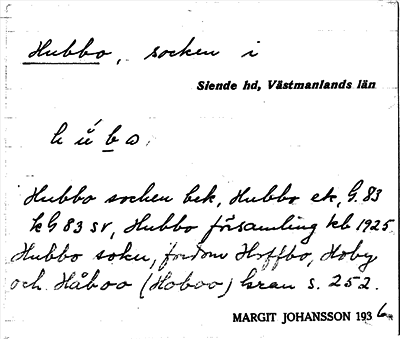 Hubbo, socken i
Siende hd, Västmanlands län
h ú b o.
Hubbo socken bek, Hubbo ek, G. 83
kG 83 sv, Hubbo församling kb 1925
Hubbo sokn, fordom Hoffbo, Hoby
och Håboo (Hoboo) Grau s. 252.
MARGIT JOHANSSON 1936